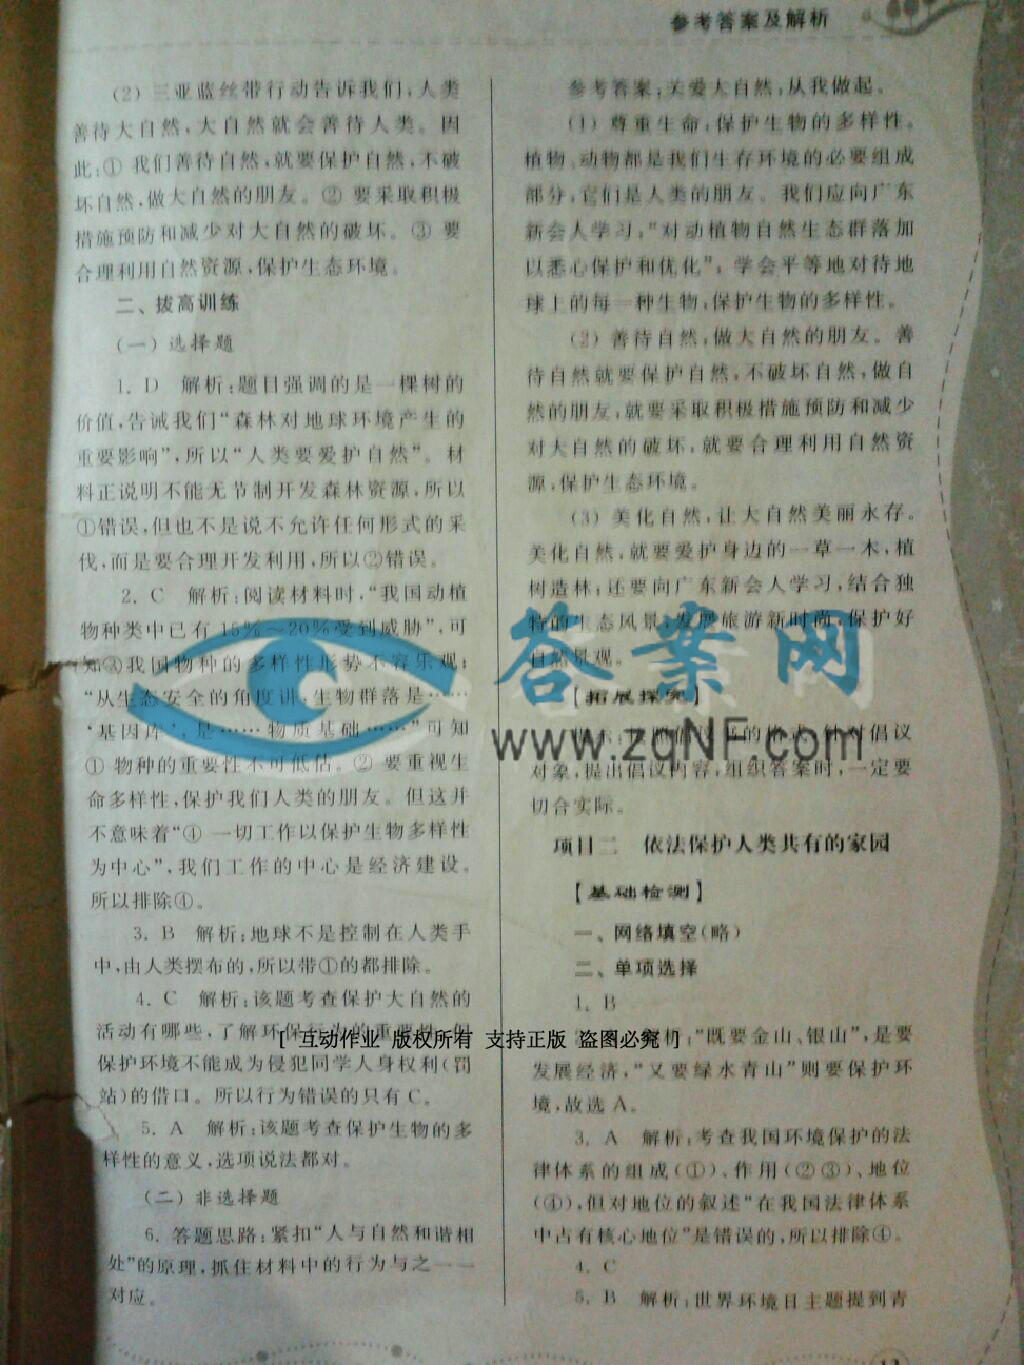 参考答案及解析
(2) 三亚蓝丝带行动告诉我们,人类
善待大自然,大自然就会善待人类。因
此:① 我们善待自然,就要保护自然,不破
坏自然,做大自然的朋友。② 要采取积极
措施预防和减少对大自然的破坏。③ 要
合理利用自然资源,保护生态环境。
二、拔高训练
(一) 选择题
1. D 解析:题目强调的是一棵树的
价值,告诫我们“森林对地球环境产生的
重要影响”,所以“人类要爱护自然”。材
料正说明不能无节制开发森林资源,所以
①错误,但也不是说不允许任何形式的采
伐,而是要合理开发利用,所以②错误。
2. C 解析:阅读材料时,“我国动植
物种类中已有15%~20%受到威胁”,可
知③我国物种的多样性形势不容乐观;
“从生态安全的角度讲,生物群落是……
‘基因库’,是……物质基础……”可知
① 物种的重要性不可低估。② 要重视生
命多样性,保护我们人类的朋友。但这并
不意味着“④ 一切工作以保护生物多样性
为中心”,我们工作的中心是经济建设。
所以排除④。
3. B 解析:地球不是控制在人类手
中,由人类摆布的,所以带①的都排除。
4. C 解析:该题考查保护大自然的
活动有哪些,了解环保行为的重要性,但
保护环境不能成为侵犯同学人身权利(罚
站)的借口。所以行为错误的只有C。
5. A 解析:该题考查保护生物的多
样性的意义,选项说法都对。
(二) 非选择题
6. 答题思路:紧扣“人与自然和谐相
处”的原理,抓住材料中的行为与之一一
对应。
参考答案:关爱大自然,从我做起。
(1) 尊重生命,保护生物的多样性。
植物、动物都是我们生存环境的必要组成
部分,它们是人类的朋友。我们应向广东
新会人学习,“对动植物自然生态群落加
以悉心保护和优化”,学会平等地对待地
球上的每一种生物,保护生物的多样性。
(2) 善待自然,做大自然的朋友。善
待自然就要保护自然,不破坏自然,做自
然的朋友,就要采取积极措施预防和减少
对大自然的破坏,就要合理利用自然资
源,保护生态环境。
(3) 美化自然,让大自然美丽永存。
美化自然,就要爱护身边的一草一木,植
树造林;还要向广东新会人学习,结合独
特的生态风景,发展旅游新时尚,保护好
自然景观。
【拓展探究】
针对倡议
对象,提出倡议内容,组织答案时,一定要
切合实际。
项目二 依法保护人类共有的家园
【基础检测】
一、网络填空(略)
二、单项选择
1. B
解析:“既要金山、银山”,是要
发展经济,“又要绿水青山”则要保护环
境,故选 A。
3. A 解析:考查我国环境保护的法
律体系的组成(①)、作用(②③)、地位
(④),但对地位的叙述“在我国法律体系
中占有核心地位”是错误的,所以排除④。
4. C
5. B 解析:世界环境日主题提到青
答案网
www.zqNF.com
[ 互动作业 版权所有 支持正版 盗图必究 ]